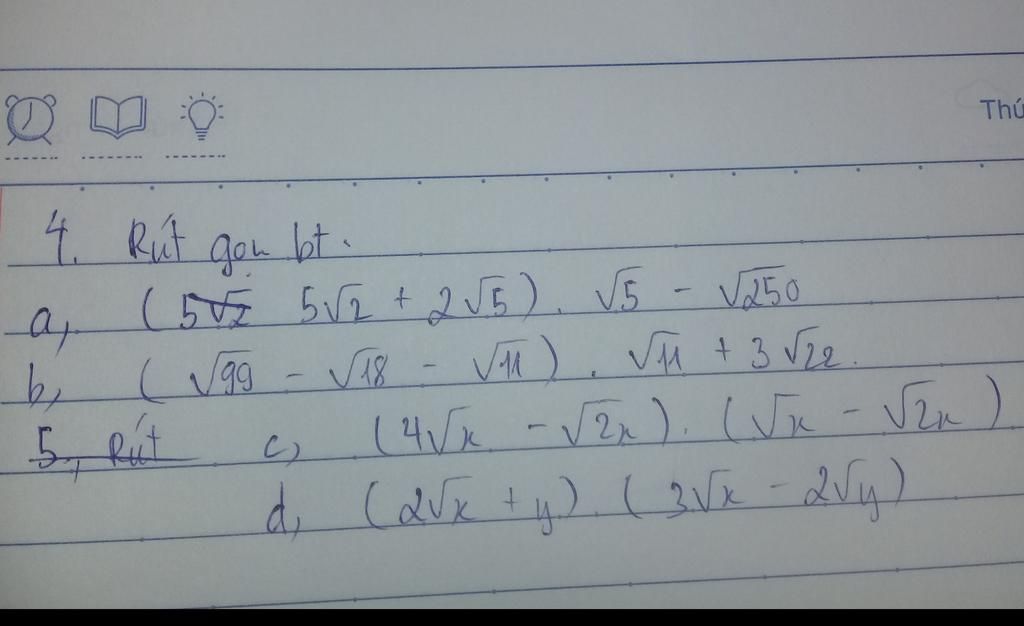 Thứ
4. Rút gọn bt.
a, (5√2 5√2 + 2√5). √5 - √250
b, ( √99 - √18 - √11 ) . √11 + 3√22.
5, Rút c, (4√x - √2x). (√x - √2x)
d, (2√x + y). ( 3√x - 2√y)